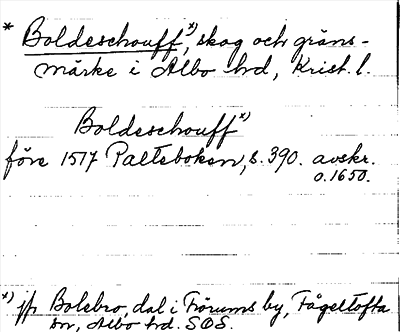 * Boldeschouff,*) skog och gräns-
märke i Albo hd, Krist. l.
Boldeschouff*)
före 1517 Palteboken, s. 390. avskr.
o. 1650.
*) jfr Bolsbro, dal i Frörums by, Fågeltofta
sn, Albo hd. SOS.